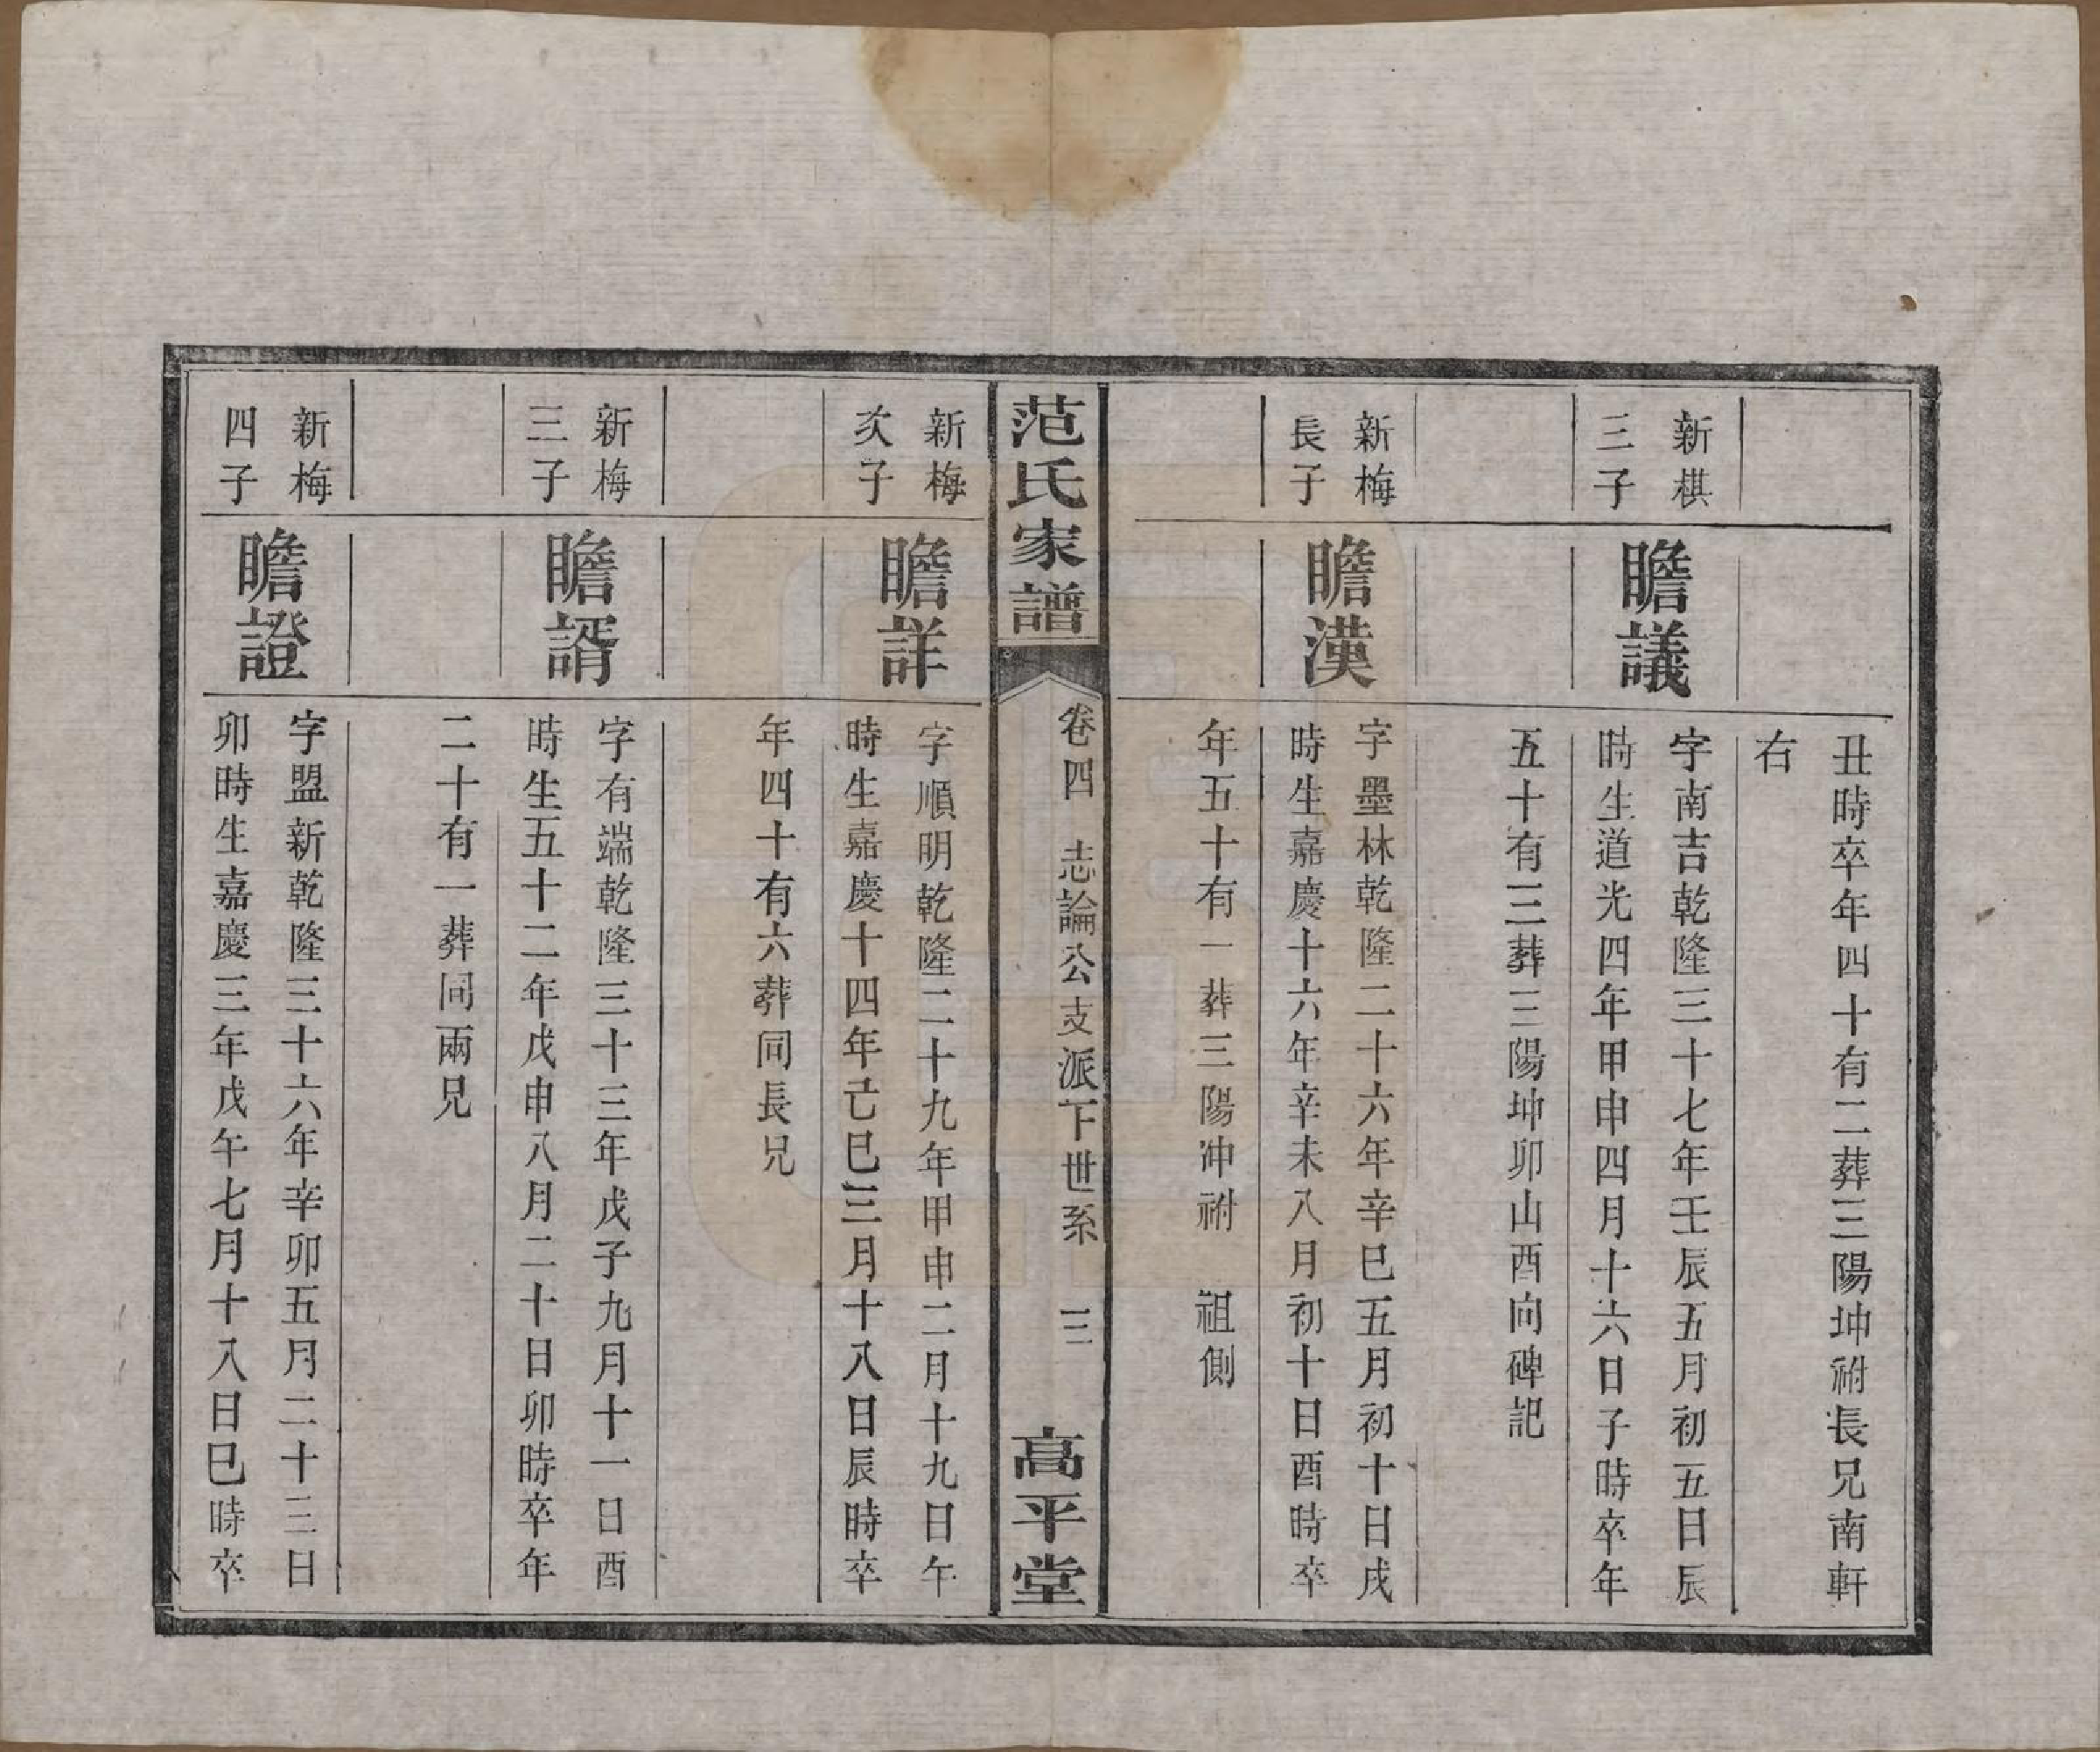 丑時卒年四十有二葬三陽坤祔長兄南軒
右
新棋
三子
瞻議
字南吉乾隆三十七年壬辰五月初五日辰
時生道光四年甲申四月十六日子時卒年
五十有三葬三陽坤卯山酉向碑記
新梅
長子
瞻漢
字墨林乾隆二十六年辛巳五月初十日戌
時生嘉慶十六年辛未八月初十日酉時卒
年五十有一葬三陽冲祔 祖側
范氏家譜
卷四 志論公支派下世系 三
高平堂
新梅
次子
瞻詳
字順明乾隆二十九年甲申二月十九日午
時生嘉慶十四年己巳三月十八日辰時卒
年四十有六葬同長兄
新梅
三子
瞻諝
字有端乾隆三十三年戊子九月十一日酉
時生五十二年戊申八月二十日卯時卒年
二十有一葬同兩兄
新梅
四子
瞻證
字盟新乾隆三十六年辛卯五月二十三日
卯時生嘉慶三年戊午七月十八日巳時卒